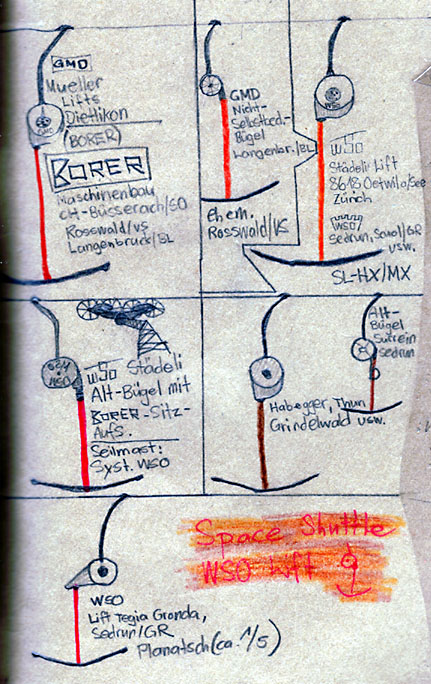 GMD
Mueller
Lifts
Dietlikon
(BORER)
BORER
Maschinenbau
CH-Büsserach/SO
Rosswald/VS
Langenbruck/BL
GMD
GMD
Nicht-
Selbstbed.-
Bügel
Langenbr./BL
Ehem.
Rosswald/VS
WSO
WSO
Städeli Lift
8618 Oetwila/See
Zürich
WSO/
Sedrun, Scuol/GR
usw.
SL-HX/MX
WSO
WSO Städeli
Alt-Bügel mit
BORER-Sitz-
Aufs.
Seilmast:
Syst. WSO
Habegger, Thun
Grindelwald usw.
Alt-
Bügel
Sutrein
Sedrun
WSO
Lift Tegia Gronda,
Sedrun/GR
Planatsch (ca. 1/5)
Space Shuttle
WSO Lift